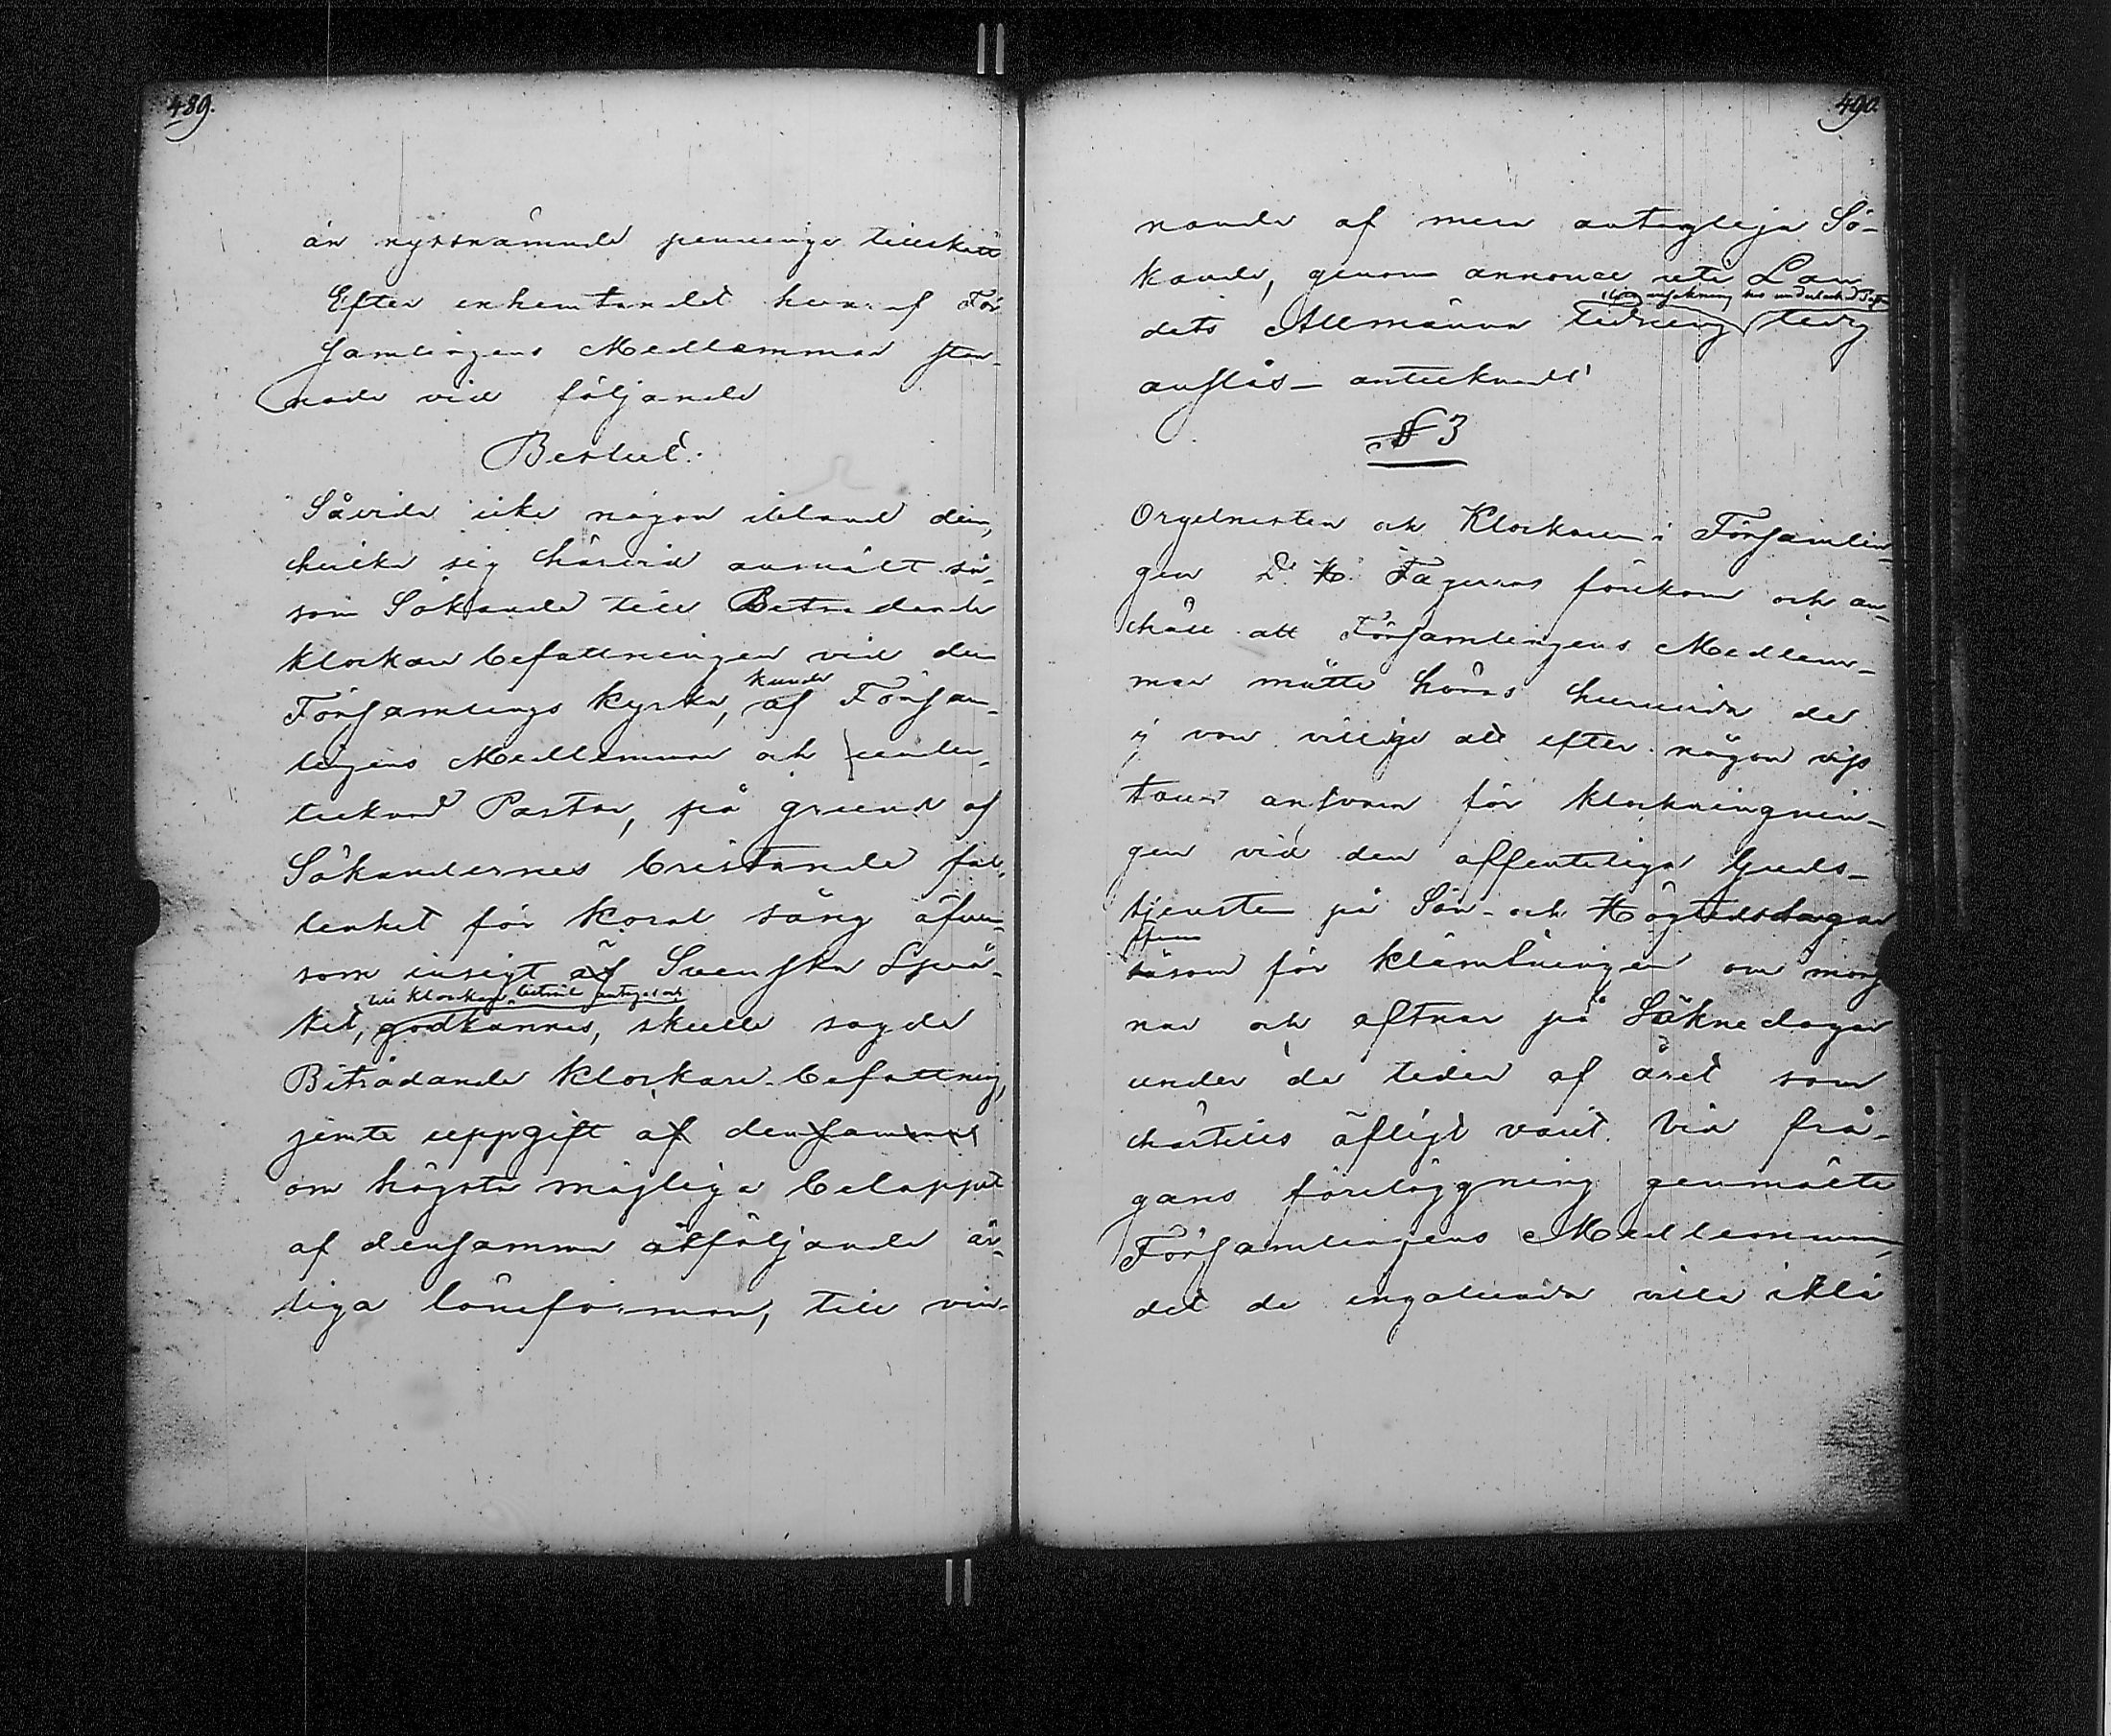 489.
än nyssnämnde penninge tillskott
Efter inhemtandet häraf För
samlingens Medlemmar stan-
nade vid följande
Beslut.
Såvida icke någon ibland dem,
hvilka sig härvid anmält så-
som Sökande till Biträdande
klockare befattningen vid den
kunde
Församlings kyrka, af Församl-
lingens Medlemmar och under-
tecknad Pastor, på grund af
Sökandernes bristande fal-
lenhet för koral sång äfven-
som insigt af Svenska Språ-
till klockare biträde antagas och
ket, godkännes, skulle sagde
Biträdande klockare-befattning,
jemte uppgift af densamma
om högsta möjliga beloppet
af densamma åtföljande år-
liga löneförmån, till vin-
490.
nande af mera antaglige Sö-
kande, genom annonce uti Lan
ansökning hos undertecknad Pastor
dets Allmänna tidning ledig
anslås - antecknadt
§ 3
Orgelnisten och Klockaren i Församlin-
gen D. H. Fagerros förekom och an-
höll att Församlingens Medlem-
mar måtte höras huruvida de
ej vore villige att efter någon viss
tour ansvara för klockringnin-
gen vid den offentliga Guds-
tjensten på Sön- och Högtidsdagar
äfven
såsom för klämtningen om morg
nar och aftnar på Söknedagar
under de tider af året som
härtills öfligt varit. Vid frå-
gans föreläggning genmälte
Församlingens Medlemmar,
det de ingalunda ville ikläd